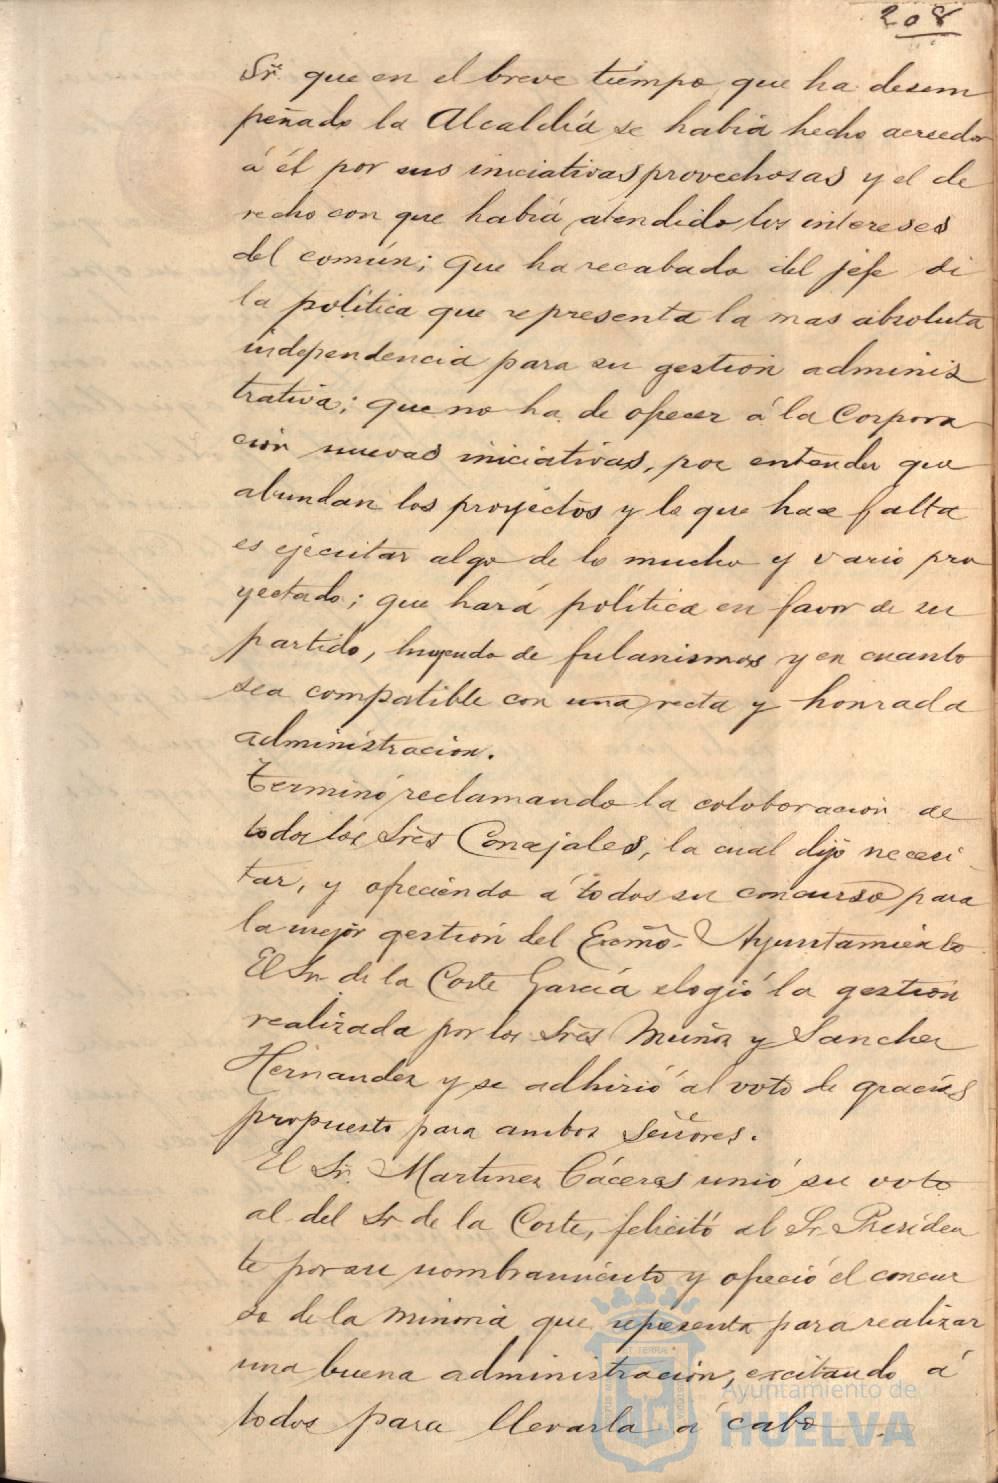 208
Sr. que en el breve tiempo que ha desem
peñado la Alcaldía se había hecho acreedor
á él por sus iniciativas provechosas y el de
recho con que había atendido los intereses
del común; que ha recabado del jefe de
la política que representa la mas absoluta
independencia para su gestión adminis
trativa; que no ha de ofrecer á la Corpora
ción nuevas iniciativas, por entender que
abundan los proyectos y lo que hace falta
es ejecutar algo de lo mucho y vario pro
yectado; que hará política en favor de su
partido, huyendo de fulanismos y en cuanto
sea compatible con una recta y honrada
administracion.
Terminó reclamando la coloboracion de
todos los Sres Concejales, la cual dijo nececi
tar, y ofreciendo á todos su concurso para
la mejor gestión del Excmo. Ayuntamiento
El Sr. de la Corte García elogió la gestión
realizada por los Sres Muñoz y Sanchez
Hernandez y se adhirió al voto de gracias
propuesto para ambos Señores.
El Sr. Martinez Cáceres unió su voto
al del Sr de la Corte, felicitó al Sr. Presiden
te por su nombramiento y ofreció el concur
so de la minoria que representa para realizar
una buena administración, excitando á
todos para llevarla á cabo
Ayuntamiento de
HUELVA